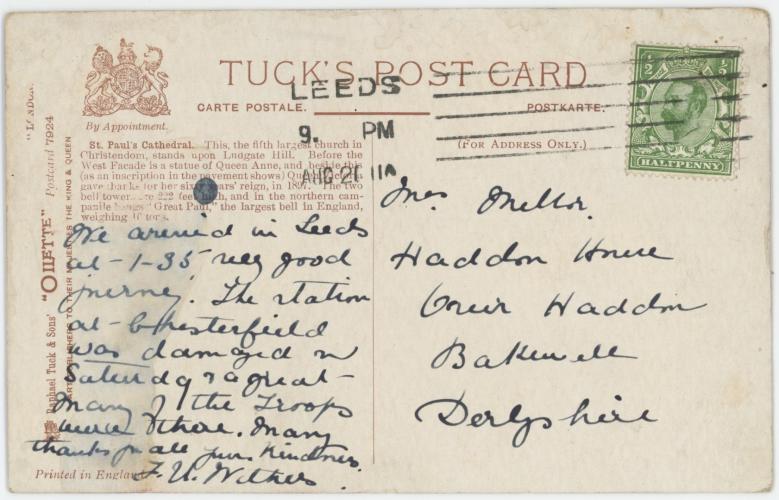 TUCK'S POST CARD
CARTE POSTALE.
POSTKARTE.
By Appointment.
(FOR ADDRESS ONLY.)
LEEDS
9. PM
AUG 21 11A
½ ½
HALFPENNY
St. Paul's Cathedral. This, the fifth largest church in
Christendom, stands upon Ludgate Hill. Before the
West Facade is a statue of Queen Anne, and beside this
(as an inscription in the pavement shows) Queen
gave thanks for her sixty years' reign, in 1897. The two
bell towers are 222 feet high, and in the northern cam-
panile hangs "Great Paul," the largest bell in England,
weighing 16 tons.
"LONDON.
"OILETTE" Postcard 7924
Raphael Tuck & Sons'
ART PUBLISHERS TO THEIR MAJESTIES THE KING & QUEEN
Printed in England
We arrived in Leeds
at - 1-35 very good
journey. The station
at - Chesterfield
was damaged on
Saturday & a great -
many of the Troops
were there. Many
thanks for all your kindness.
Withers
Mrs Mellor.
Haddon House
Over Haddon
Bakewell
Derbyshire